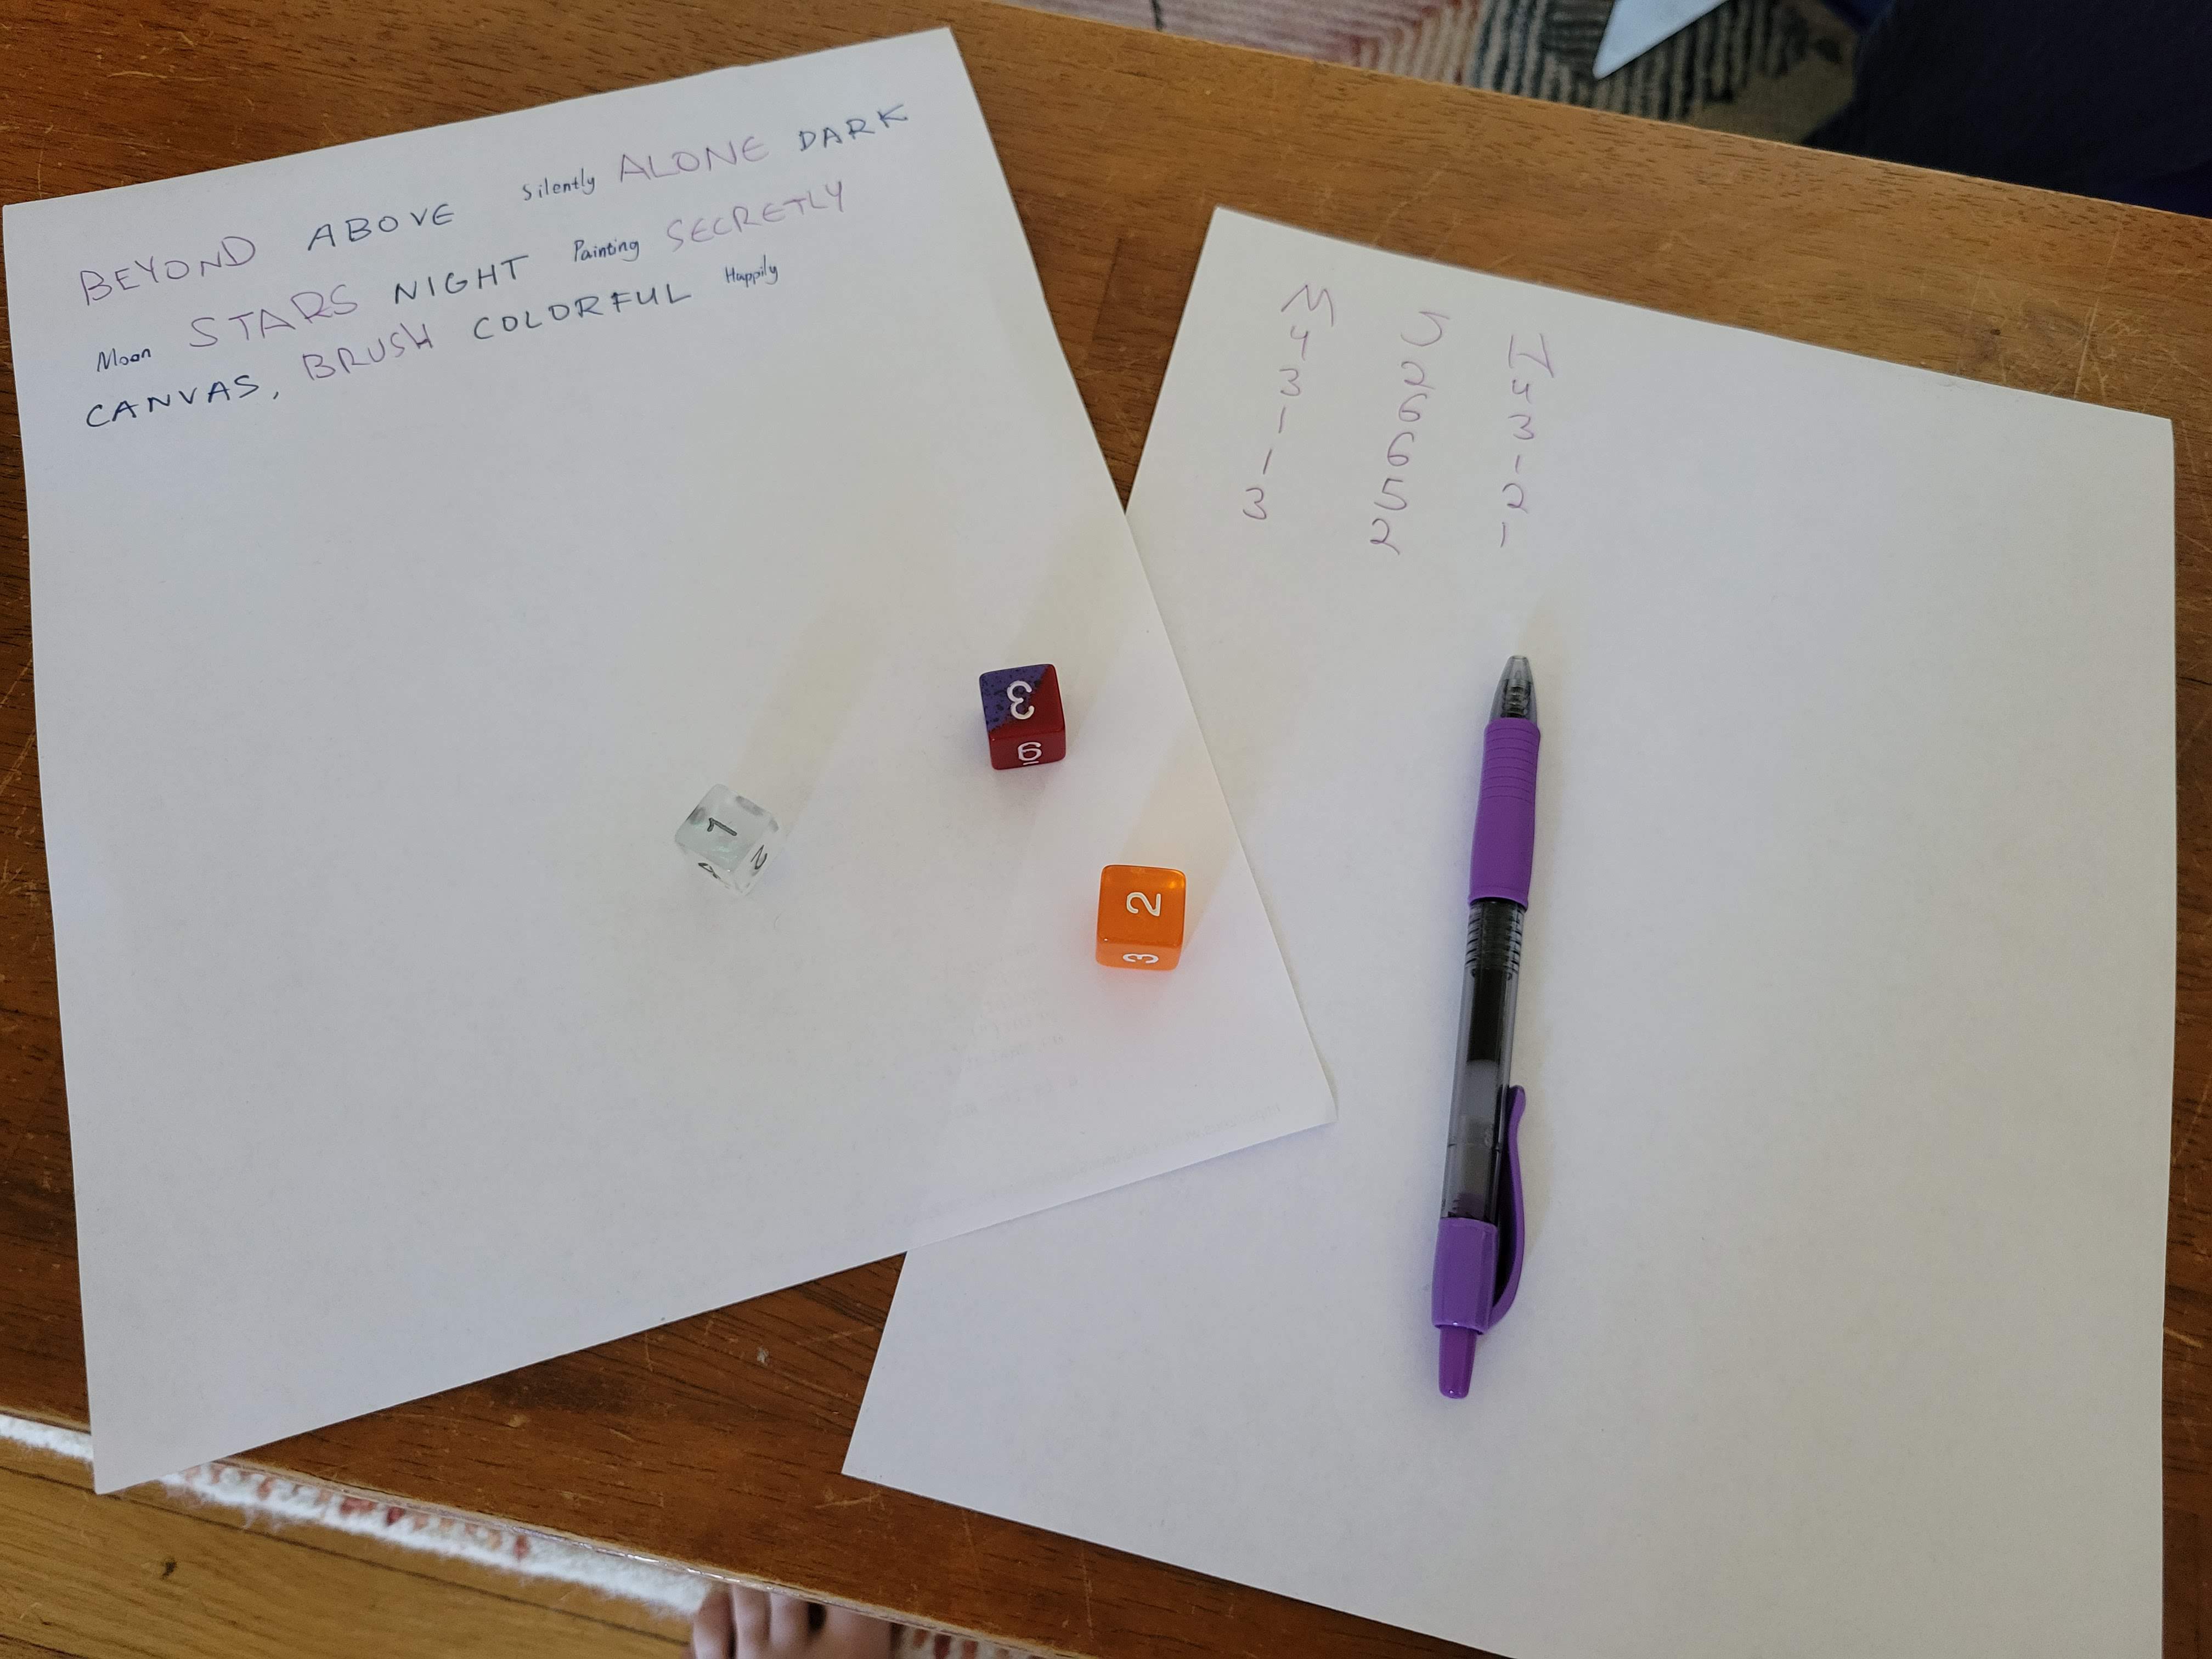 BEYOND ABOVE Silently ALONE DARK
Moon STARS NIGHT Painting SECRETLY
CANVAS, BRUSH COLORFUL Happily
M S H
4 2 4
3 6 3
1 6 1
1 5 2
3 2 1
3
6
1
2
2
3